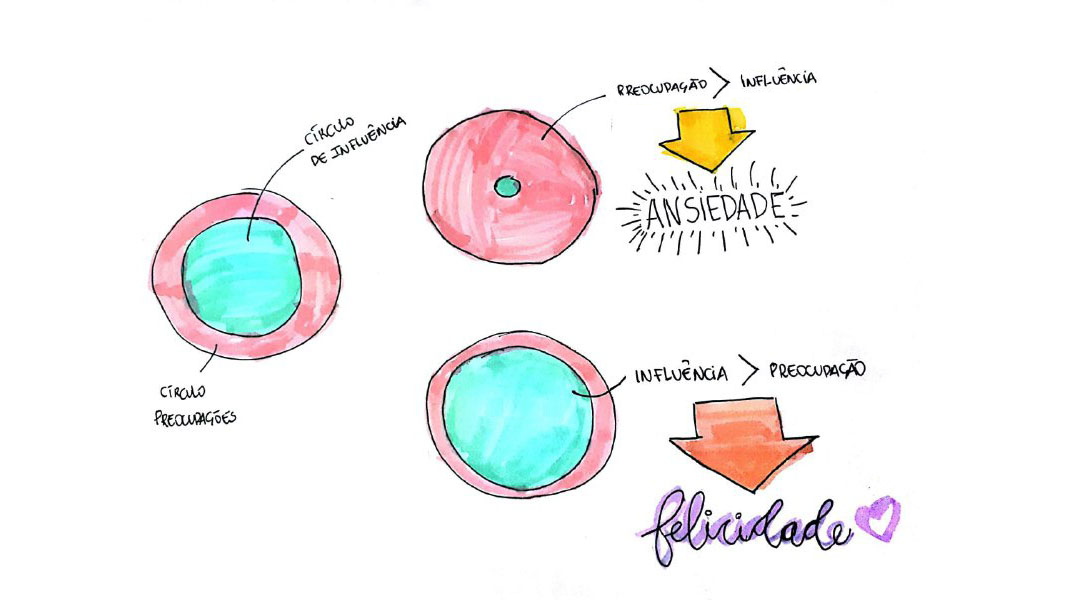 CÍRCULO
DE INFLUÊNCIA
CÍRCULO
PREOCUPAÇÕES
PREOCUPAÇÃO > INFLUÊNCIA
ANSIEDADE
INFLUÊNCIA > PREOCUPAÇÃO
felicidade